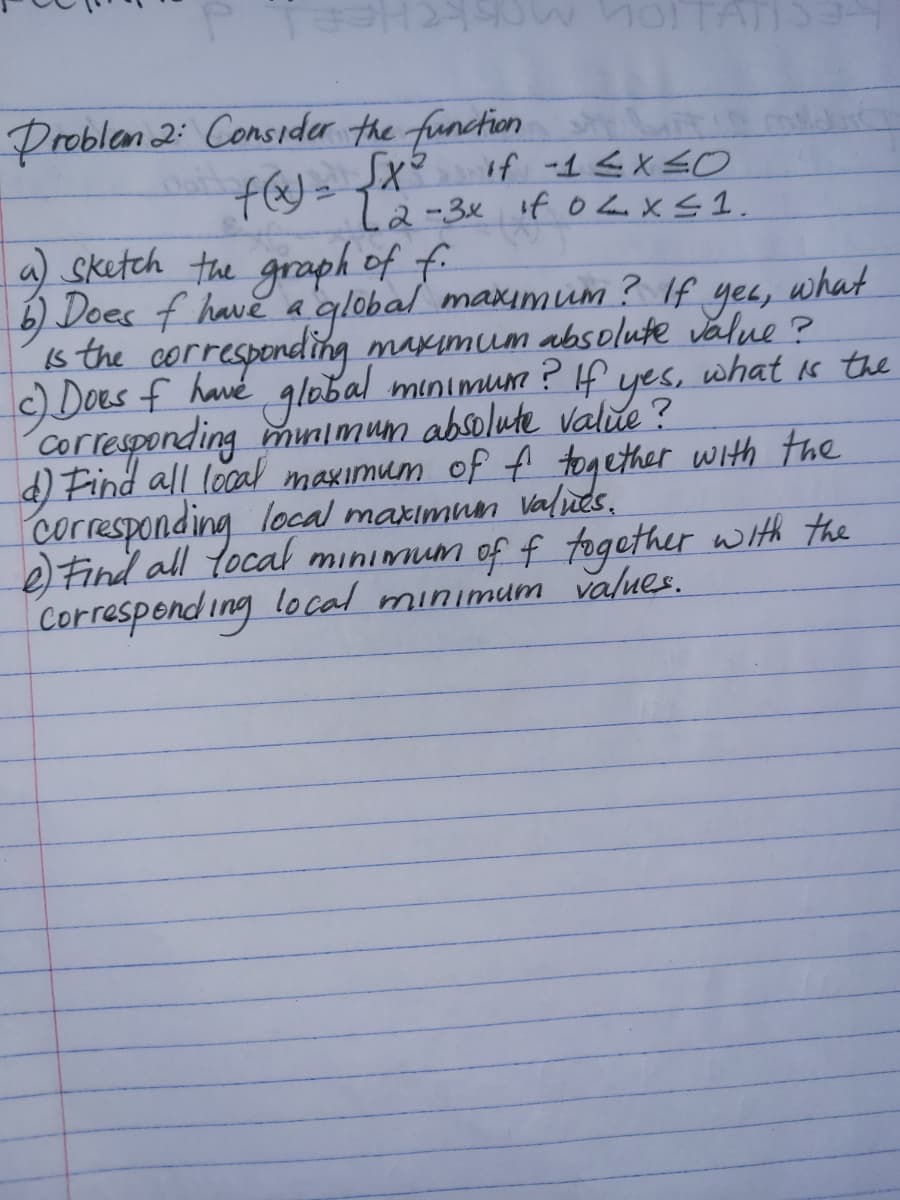 Problem 2: Consider the function
f(x) = { x² if -1 ≤ x ≤ 0
2-3x if 0 < x ≤ 1.
a) Sketch the graph of f.
b) Does f have a global maximum? If yes, what
is the corresponding maximum absolute value?
c) Does f have global minimum? If yes, what is the
corresponding minimum absolute value?
d) Find all local maximum of f together with the
corresponding local maximum values.
e) Find all local minimum of f together with the
corresponding local minimum values.